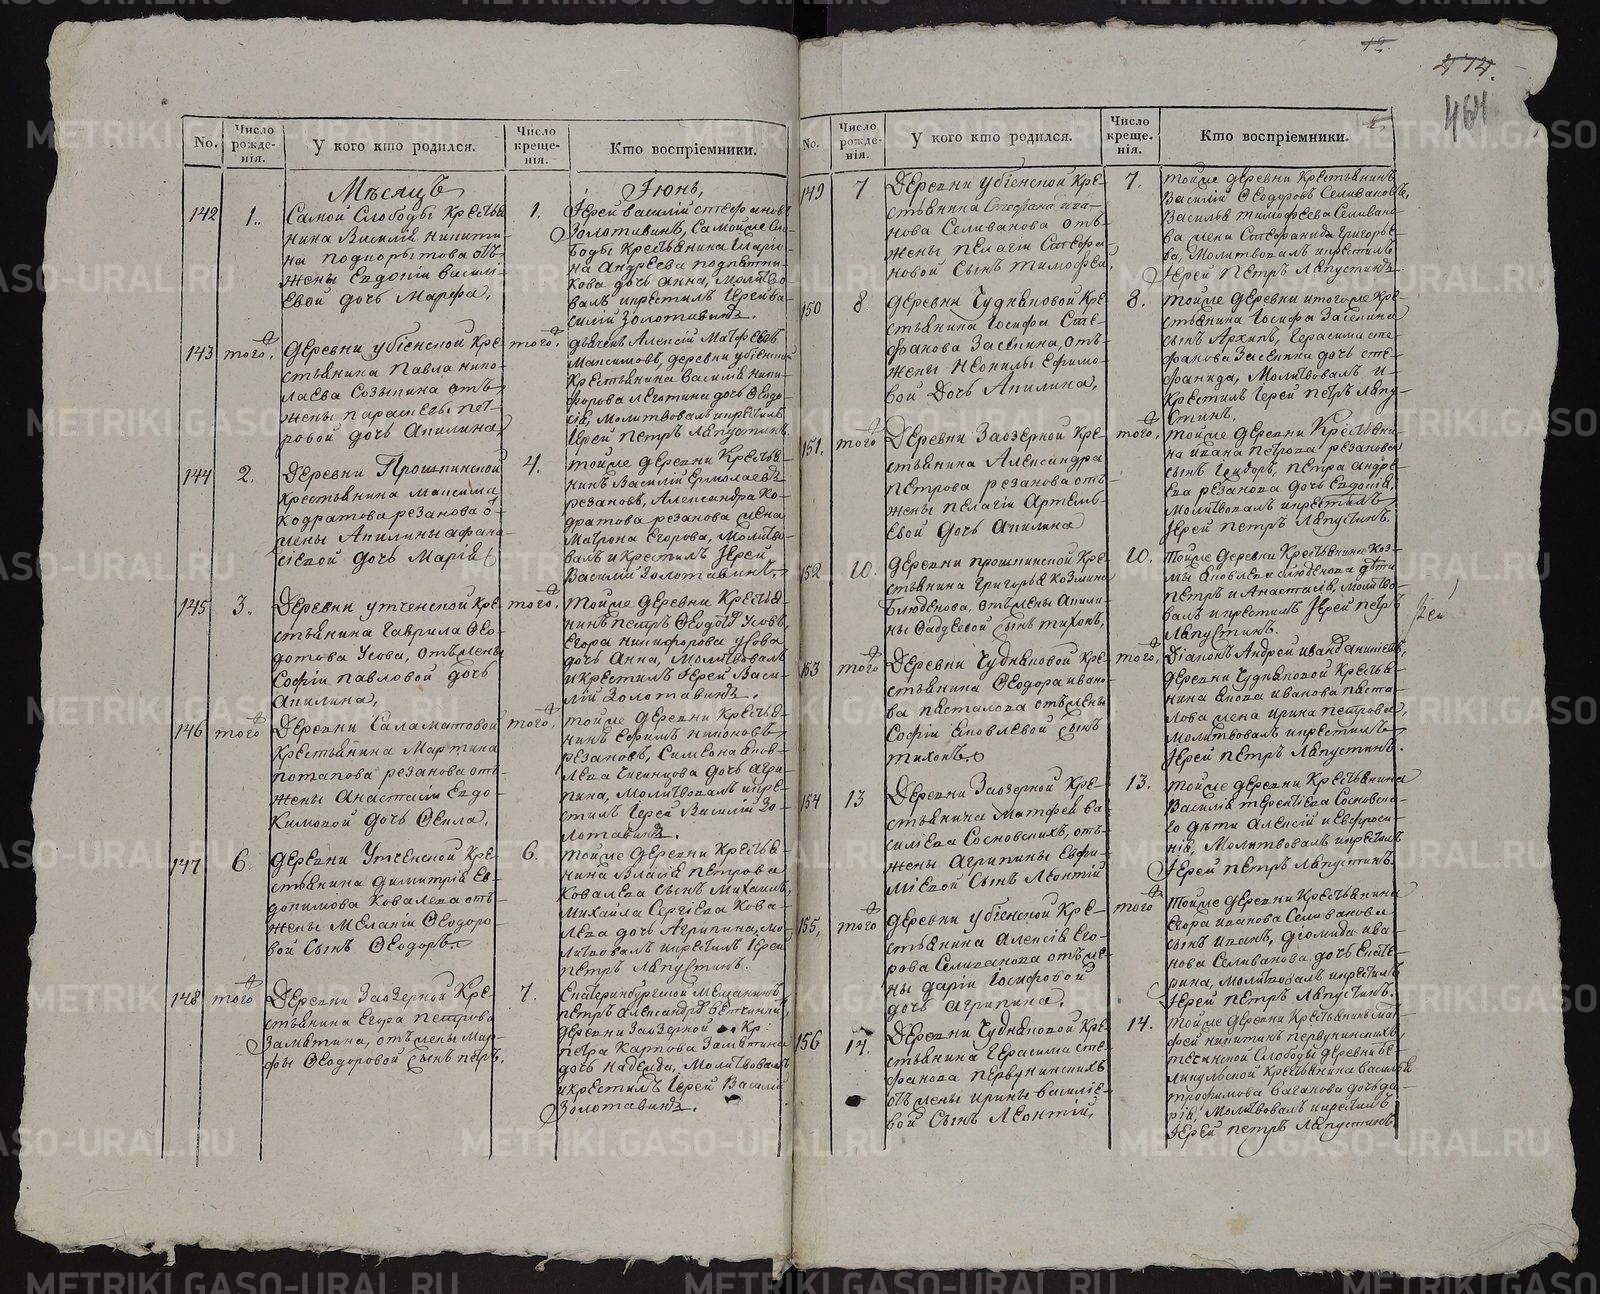 12.
474.
464
No.
Число рожде-нія.
У кого кто родился.
Число креще-нія.
Кто воспріемники.
Мѣсяцъ
Іюнь,
142
1.
Самой Слободы Крестья
нина Василія никити-
на подкорытова отъ
жены Евдокіи васил-
евой дочь Марфа,
1.
Іерей василій стефановъ
Золотавинъ, самой же Сло-
боды крестьянина Иларіо-
на Андреева
кова дочь анна, молитво-
валъ икрестилъ Іерей ва-
силій Золотавинъ.
143
того,
деревни убіенской кре-
стьянина Павла нико-
лаева Созыкина отъ
жены парасковьи пет-
ровой дочь Акилина,
того,
дьячекъ Алексій Матфеевъ
Максимовъ, деревни убіенской
крестьянина василія ники-
форова дочь Ѳеодо-
сія, Молитвовалъ икрестилъ
Іерей Петръ Ляпустинъ.
144
2.
Деревни Прошкинской
крестьянина Максима
кодратова резанова о-
жены Акилины афана-
сіевой дочь Марія
4.
тойже деревни крестья-
нинъ Василій Ермолаевъ
резановъ, Александра ко-
дратова резанова жена
Матрона Егорова, Молитво-
валъ икрестилъ Іерей
Василій Золотавинъ.
145
3.
Деревни утченской кре-
стьянина Гаврила Ѳео-
дотова Усова, отъ жены
Софіи павловой дочь
Акилина,
того,
тойже деревни Крестья-
нинъ Петръ Ѳеодотовъ Усовъ,
Егора никифорова усова
дочь Анна, Молитвовалъ
икрестилъ Іерей Васи-
лій Золотавинъ.
146
того
Деревни Саламатовой
Крестьянина Мартина
потапова резанова отъ
жены Анастасіи Евдо-
кимовой дочь Ѳекла,
того,
тойже деревни крестья-
нинъ Ефимъ никоновъ
резановъ, Симеона яков-
лева дочь агри-
пина, молитвовалъ икре-
стилъ Іерей Василій Зо-
лотавинъ.
147
6.
деревни Утченской кре-
стьянина димитрія ев-
докимова Ковалева отъ
жены Меланіи Ѳеодоро-
вой сынъ Ѳеодоръ.
6.
тойже деревни крестья-
нина Власія петрова
Ковалева сынъ Михаилъ,
Михайла Сергіева Кова-
лева дочь Агрипина, мо-
литвовалъ икрестилъ Іерей
петръ Ляпустинъ.
148
того
Деревни Заозерной кре-
стьянина Егора петрова
Замятина, отъ жены Мар-
фы Ѳеодоровой сынъ петръ.
7.
Екатеринбургской Мещанинъ
петръ Александровъ
деревни Заозерной кр:
петра карпова Замятина
дочь надежда, Молитвовалъ
икрестилъ Іерей Василій
Золотавинъ.
No.
Число рожде-нія.
У кого кто родился.
Число креще-нія.
Кто воспріемники.
149
7
Деревни убіенской кре-
стьянина Стефана ива-
нова Селиванова отъ
жены пелагіи Стефа-
новой сынъ тимофей,
7.
тойже деревни крестьянинъ
Василій Ѳеодоровъ Селивановъ,
Василья тимофеева Селивано-
ва жена Стефанида Григорье-
ва, Молитвовалъ икрестилъ
Іерей Петръ Ляпустинъ.
150
8.
деревни Чудиновой кре-
стьянина Іосифа Сте-
фанова Засыпкина, отъ
жены Неонилы Ефимо-
вой дочь Акилина,
8.
тойже деревни итогоже кре-
стьянина Іосифа Засыпкина
сынъ Архипъ, Герасима сте-
фанова Засыпкина дочь сте-
фанида, Молитвовалъ и
крестилъ Іерей петръ Ляпу-
стинъ.
151.
того
Деревни Заозерной кре-
стьянина Александра
Петрова резанова отъ
жены пелагіи Артемь-
евой дочь акилина
того,
тойже деревни Крестьяни-
на ивана петрова резанова
сынъ Исидоръ, петра андре-
ева резанова дочь евдокія,
Молитвовалъ икрестилъ
Іерей петръ Ляпустинъ.
152
10.
деревни прошкинской кре-
стьянина Григорья козмина
Блюденова, отъ жены акили-
ны Ѳаддеевой сынъ тихонъ,
10.
тойже деревни крестьянина коз-
мы яковлева блюденова дѣти
петръ и Анастасія, молитво-
валъ икрестилъ Іерей петръ
Ляпустинъ.
153
того
Деревни Чудиновой кре-
стьянина Ѳеодора ивано-
ва пасталова отъ жены
Софіи яковлевой сынъ
тихонъ
того,
Діаконъ Андрей
деревни Чудиновой крестья-
нина якова иванова паста-
лова жена ирина петрова,
молитвовалъ икрестилъ
Іерей петръ Ляпустинъ.
154
13
Деревни Заозерной кре-
стьянина Матфея ва-
сильева Сосновскихъ, отъ
жены Агрипины Евфи-
міевой сынъ Леонтій
13.
тойже деревни крестьянина
Василія терентіева Сосновска-
го дѣти алексій и Евфроси-
нія, Молитвовалъ икрестилъ
Іерей петръ Ляпустинъ.
155,
того
деревни убіенской кре-
стьянина алексія его-
рова Селиванова отъ же-
ны даріи Іосифовой
дочь агрипина,
того
тойже деревни крестьянина
Егора иванова Селиванова
сынъ иванъ, діомида ива-
нова Селиванова дочь екате-
рина, молитвовалъ икрестилъ
Іерей петръ Ляпустинъ.
156
14.
Деревни Чудиновой кре-
стьянина Герасима сте-
фанова первунинскихъ
отъ жены ирины василіе-
вой сынъ Леонтій,
14.
тойже деревни крестьянинъ
никитинъ первунинскихъ,
теченской Слободы деревни
крестьянина василья
трофимова дочь да-
рія, Молитвовалъ икрестилъ
Іерей петръ Ляпустинъ
METRIKI.GASO-URAL.RU